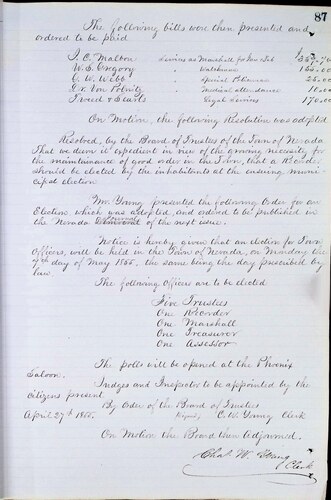 87
The following bills were then presented and
ordered to be paid
J. C. Malbon Services as Marshall for Nov & Feb
W. S. Gregory " Watchman 125.00
C. W. Webb " Special Policeman 25.00
Dr Von Polnitz " Medical attendance 10.00
Tweed & Searls " Legal Services 170.00
On Motion, the following Resolution was adopted
Resolved, by the Board of Trustees of the Town of Nevada
That we deem it expedient in view of the growing necessity for
the maintainance of good order in the Town, that a Recorder
should be elected by the inhabitants at the ensuing muni-
cipal election
Mr. Young presented the following Order for an
Election which was adopted, and ordered to be published in
the Nevada Democrat of the next issue.
Notice is hereby given that an election for Town
Officers, will be held in the Town of Nevada, on Monday the
7th day of May 1855. the same being the day prescribed by
law.
The following Officers are to be elected
Five Trustees
One Recorder
One Marshall
One Treasurer
One Assessor
The polls will be opened at the Phoenix
Saloon.
Judges and Inspector to be appointed by the
Citizens present
By Order of the Board of Trustees
April 27th 1855. C. W. Young Clerk
On Motion the Board then Adjourned.
Chas. W. Young
Clerk